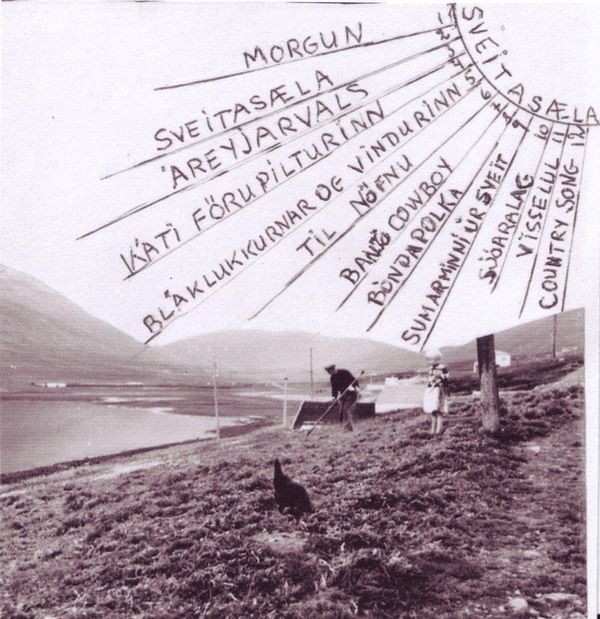 SVEITASÆLA
1 MORGUN
2 SVEITASÆLA
3 ÁREYJARVALS
4 KÁTI FÖRUPILTURINN
5 BLÁKLUKKURNAR OG VINDURINN
6 TIL NÖFNU
7 BANJÓ COWBOY
8 BÓNDAPOLKA
9 SUMARMINNI ÚR SVEIT
SJÓARALAG
10 VISSELUL
11 COUNTRY SONG
12